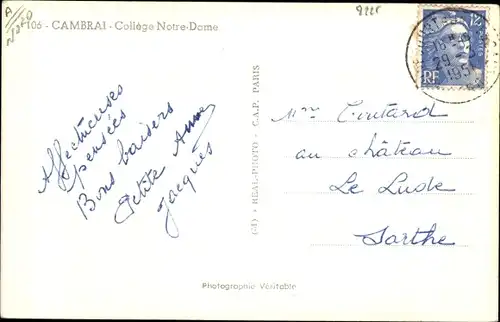 106 - CAMBRAI - Collège Notre-Dame
Affectueuses
pensées
Bons baisers
Petite Anne
Jacques
(-4) - REAL-PHOTO - C.A.P. PARIS
12F
RF
18 H
29
1951
Mme Coutard
au château
Le Lude
Sarthe
Photographie Véritable